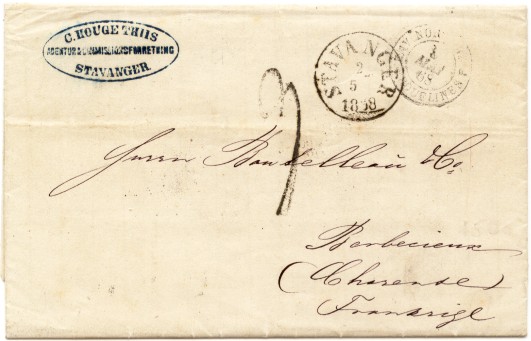 C. ROUGE THIIS
AGENTUR & COMMISSIONSFORRETNING
STAVANGER
STAVANGER
2
5
1868
3
Herrn Boutelleau & Co.
Barbecieux
(Charente)
Frankrige